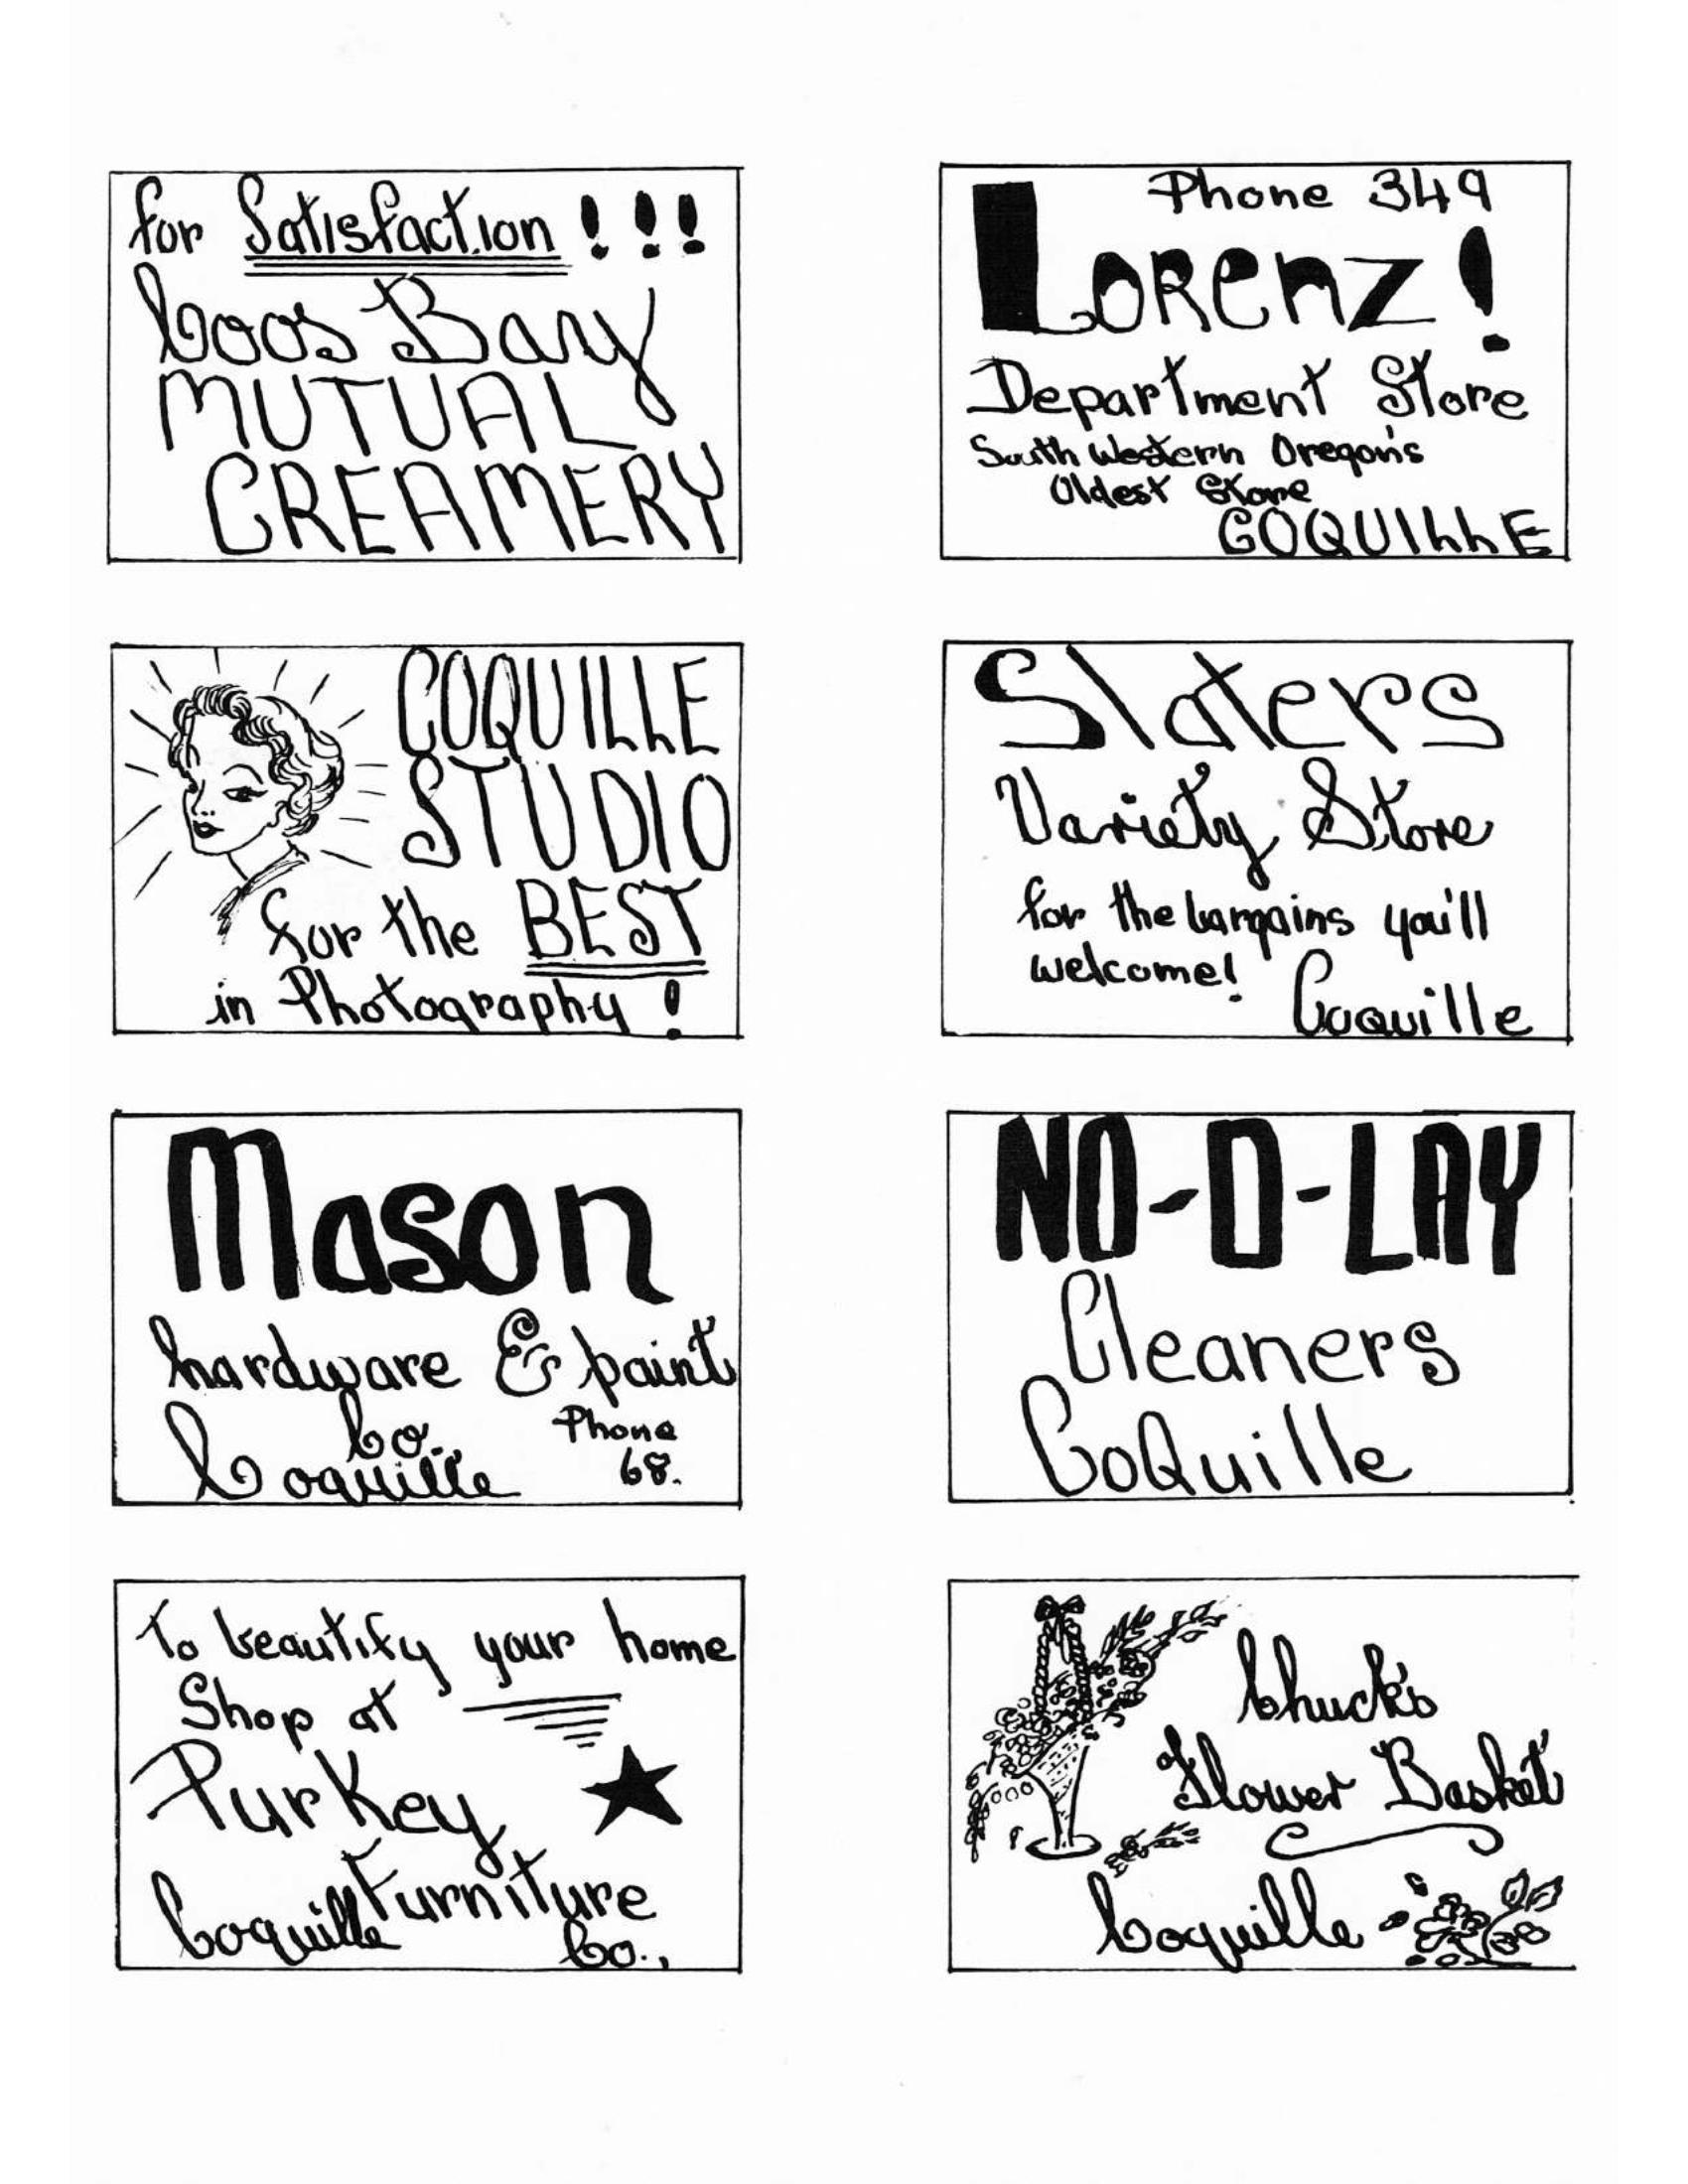 for Satisfaction !!!
Coos Bay
MUTUAL
CREAMERY
Phone 349
LORENZ!
Department Store
South Western Oregon's
Oldest Store
COQUILLE
COQUILLE
STUDIO
for the BEST
in Photography!
Slaters
Variety Store
for the bargains you'll
welcome!
Coquille
Mason
hardware & paint
Co.
Phone
68.
Coquille
NO-D-LAY
Cleaners
CoQuille
To beautify your home
Shop at
Purkey
Furniture
Coquille
Co.,
Chuck's
Flower Basket
Coquille